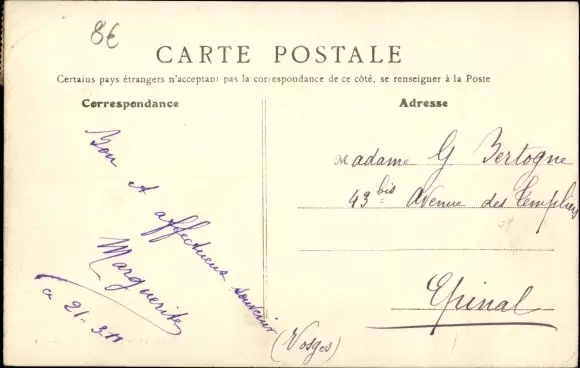 8€
CARTE POSTALE
Certains pays étrangers n'acceptant pas la correspondance de ce côté, se renseigner à la Poste
Correspondance
Bon et affectueux souvenir
Marguerite
21-3-11
Adresse
Madame G. Bertogne
43 bis Avenue des Templiers
Epinal
(Vosges)